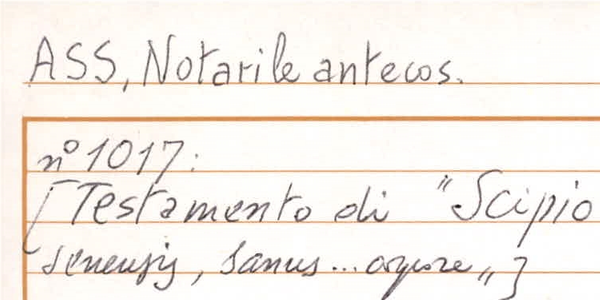 ASS, Notarile antecos.
n° 1017:
[Testamento di "Scipio
senensis, sanus... corpore"]